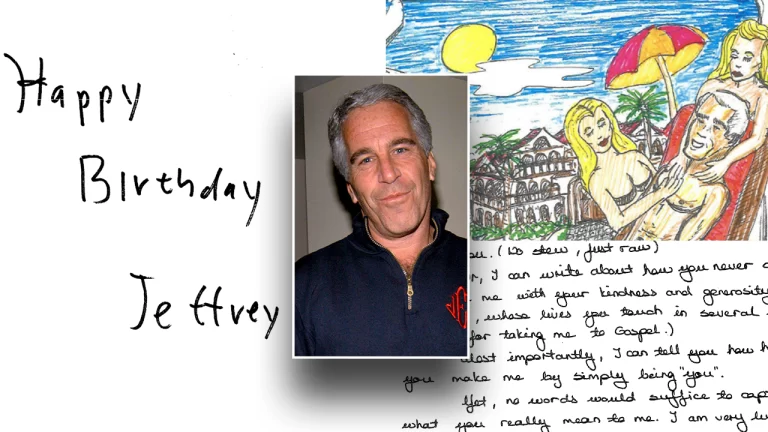 Happy
Birthday
Jeffrey
you. (No stew, just raw)
I can write about how you never
me with your kindness and generosity
, whose lives you touch in several
for taking me to Gospel.)
importantly, I can tell you how
you make me by simply being "you".
Yet, no words would suffice to
what you really mean to me. I am very